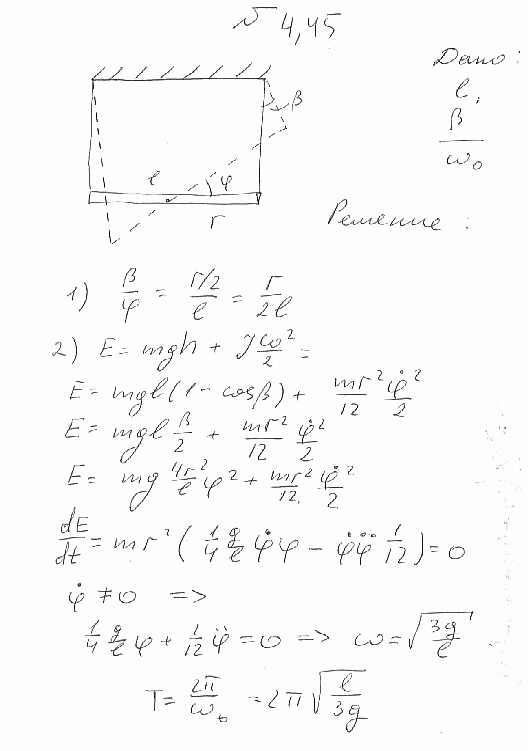 √ 4,45
Дано:
l,
β
ω₀
β
l
φ
r
Решение:
1) β/φ = (r/2)/l = r/2l
2) E = mgh + Jω²/2 =
E = mgl(1 - cosβ) + mr²/12 φ̇²/2
E = mgl β/2 + mr²/12 φ̇²/2
E = mg 4r²/l φ² + mr²/12 φ̇²/2
dE/dt = mr²(1/4 g/l φ̇φ - φ̇φ̈ 1/12) = 0
φ̇ ≠ 0 =>
1/4 g/l φ + 1/12 φ̈ = 0 => ω = √(3g/l)
T = 2π/ω₀ = 2π√(l/3g)